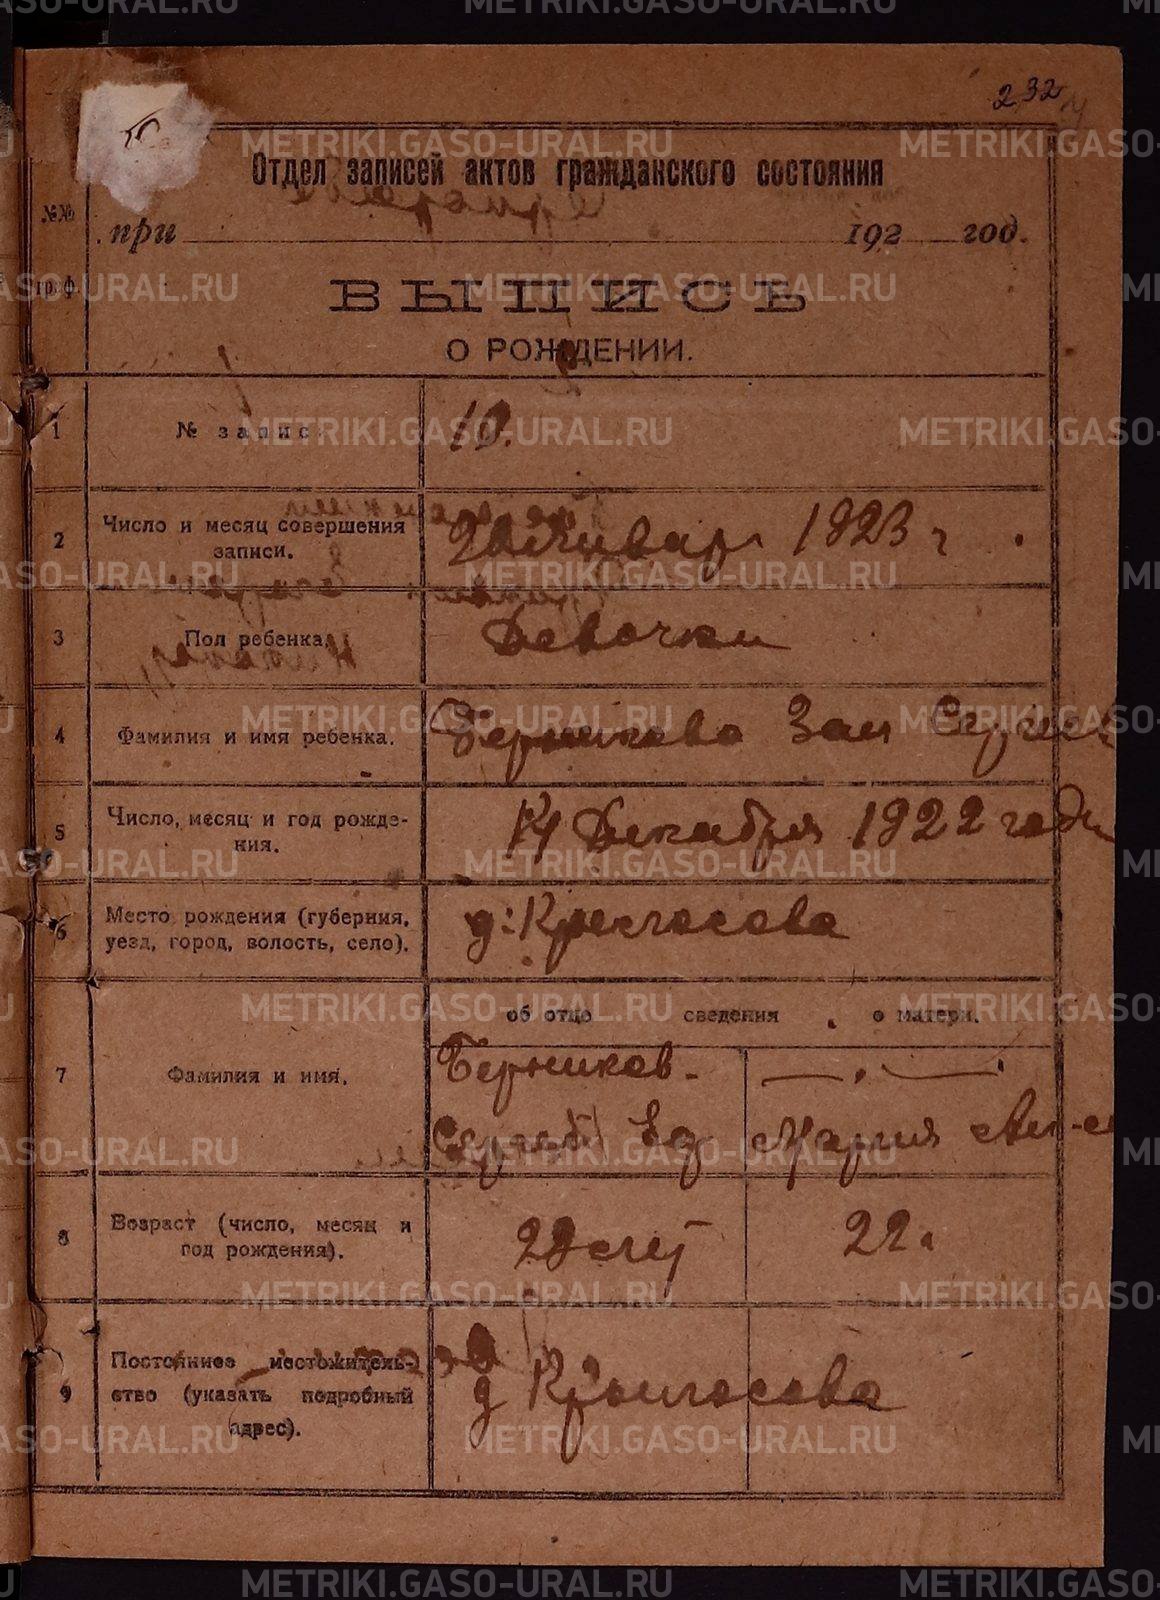 232
Отдел записей актов гражданского состояния
№№ граф.
при 192 год.
ВЫПИСЬ
О РОЖДЕНИИ.
1 № запис 10.
2 Число и месяц совершения записи. 20 Январ 1923 г.
3 Пол ребенка. Девочки
4 Фамилия и имя ребенка. Берникова Зая Сергеев
5 Число, месяц и год рождения. 14 Декабря 1922 годи
6 Место рождения (губерния, уезд, город, волость, село). д:
об отце сведения о матери.
7 Фамилия и имя. Берников
Сергей Ег Мария
8 Возраст (число, месяц и год рождения). 22.
9 Постоянное местожительство (указать подробный адрес). д
METRIKI.GASO-URAL.RU